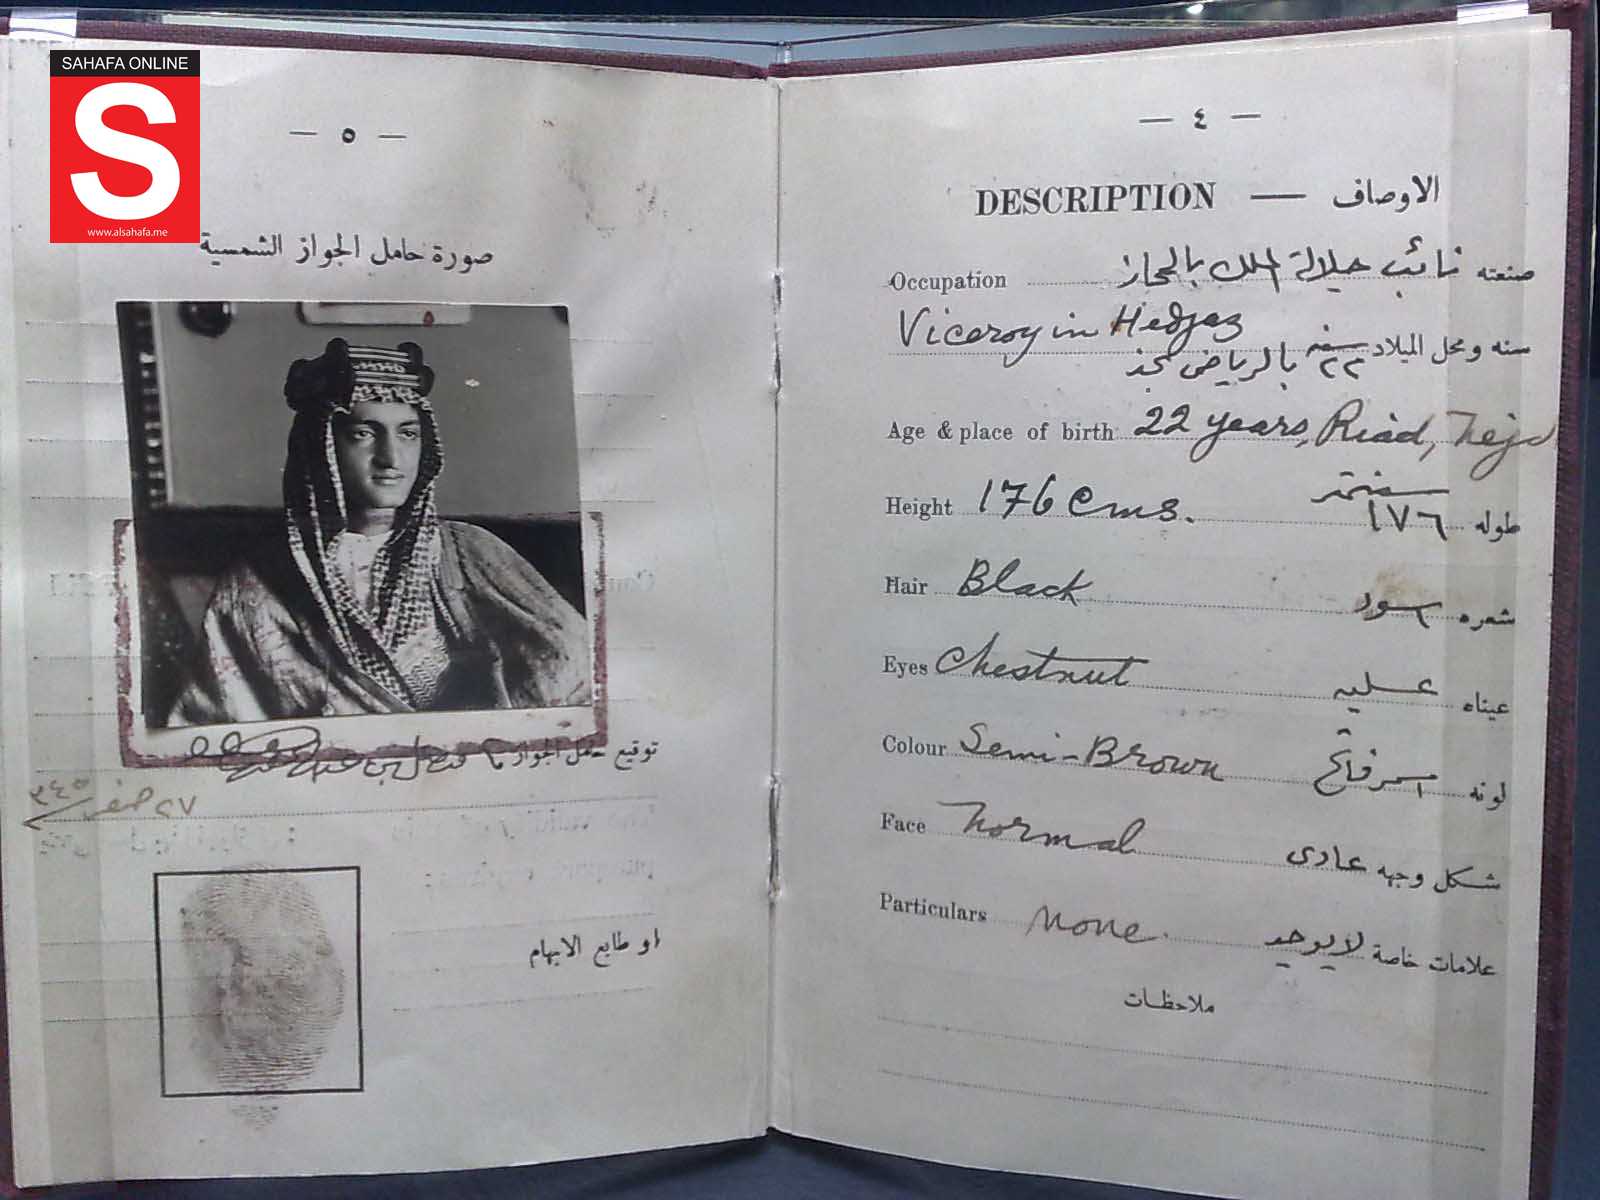 SAHAFA ONLINE
S
www.alsahafa.me
— ٤ —
DESCRIPTION — الاوصاف
Occupation صنعته نائب جلالة الملك بالحجاز
Viceroy in Hedjaz
سنه ومحل الميلاد ٢٢ سنه بالرياض نجد
Age & place of birth 22 years, Riad, Nejd
Height 176 cms. طوله ١٧٦ سنتمتر
Hair Black شعره اسود
Eyes Chestnut عيناه عسليه
Colour Semi-Brown لونه اسمر فاتح
Face Normal شكل وجهه عادى
Particulars None. علامات خاصة لا يوجد
ملاحظات
— ٥ —
صورة حامل الجواز الشمسية
توقيع حامل الجواز
٢٧ صفر ٣٤٥
او طابع الابهام